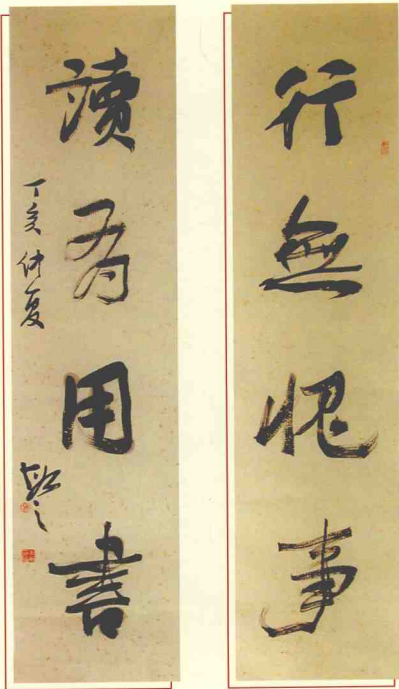 行無愧事
讀有用書
丁亥仲夏